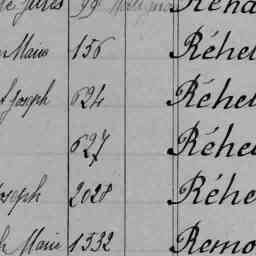 Jules 99 Réha
Marie 156 Réhel
Joseph 624 Réhel
627 Réhel
Joseph 2028 Réhe
Marie 1332 Remo